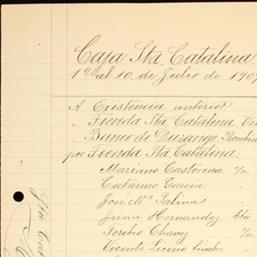 Caja Sta. Catalina
1º al 10 de Julio de 190
A Existencia anterior
" Tienda Sta. Catalina
" Banco de Durango
por Tienda Sta. Catalina
Mariano Castorena
Catarino Garcia
José Mª Salinas
Juan Hernandez
Toribio Chavez
Vicente Licerio